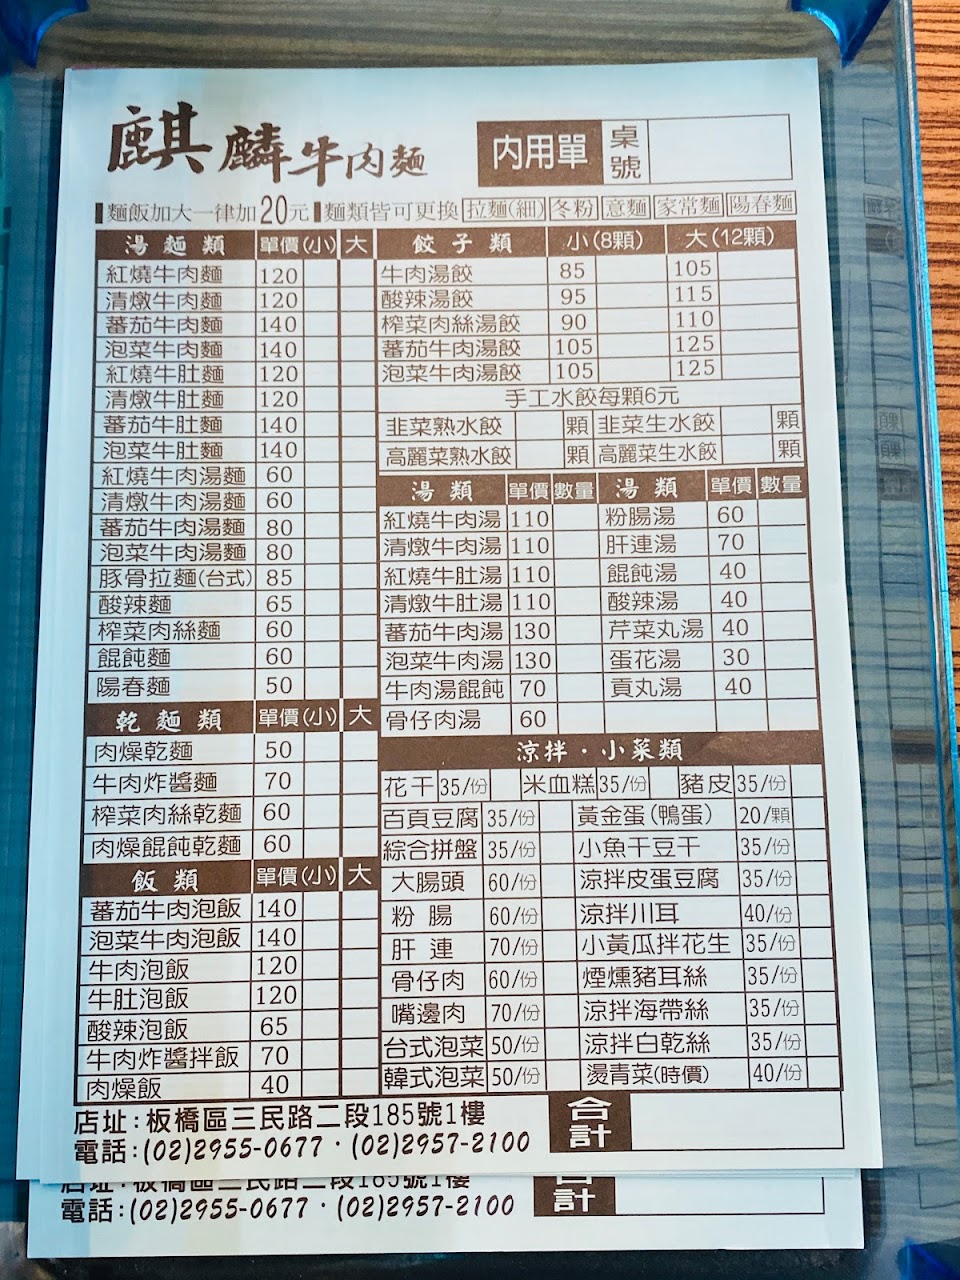 麒麟牛肉麵
內用單 桌號
麵飯加大一律加20元 麵類皆可更換 拉麵(細) 冬粉 意麵 家常麵 陽春麵
湯麵類 單價(小) 大
紅燒牛肉麵 120
清燉牛肉麵 120
蕃茄牛肉麵 140
泡菜牛肉麵 140
紅燒牛肚麵 120
清燉牛肚麵 120
蕃茄牛肚麵 140
泡菜牛肚麵 140
紅燒牛肉湯麵 60
清燉牛肉湯麵 60
蕃茄牛肉湯麵 80
泡菜牛肉湯麵 80
豚骨拉麵(台式) 85
酸辣麵 65
榨菜肉絲麵 60
餛飩麵 60
陽春麵 50
乾麵類 單價(小) 大
肉燥乾麵 50
牛肉炸醬麵 70
榨菜肉絲乾麵 60
肉燥餛飩乾麵 60
飯類 單價(小) 大
蕃茄牛肉泡飯 140
泡菜牛肉泡飯 140
牛肉泡飯 120
牛肚泡飯 120
酸辣泡飯 65
牛肉炸醬拌飯 70
肉燥飯 40
餃子類 小(8顆) 大(12顆)
牛肉湯餃 85 105
酸辣湯餃 95 115
榨菜肉絲湯餃 90 110
蕃茄牛肉湯餃 105 125
泡菜牛肉湯餃 105 125
手工水餃每顆6元
韭菜熟水餃 顆 韭菜生水餃 顆
高麗菜熟水餃 顆 高麗菜生水餃 顆
湯類 單價 數量 湯類 單價 數量
紅燒牛肉湯 110 粉腸湯 60
清燉牛肉湯 110 肝連湯 70
紅燒牛肚湯 110 餛飩湯 40
清燉牛肚湯 110 酸辣湯 40
蕃茄牛肉湯 130 芹菜丸湯 40
泡菜牛肉湯 130 蛋花湯 30
牛肉湯餛飩 70 貢丸湯 40
骨仔肉湯 60
涼拌·小菜類
花干 35/份 米血糕 35/份 豬皮 35/份
百頁豆腐 35/份 黃金蛋(鴨蛋) 20/顆
綜合拼盤 35/份 小魚干豆干 35/份
大腸頭 60/份 涼拌皮蛋豆腐 35/份
粉腸 60/份 涼拌川耳 40/份
肝連 70/份 小黃瓜拌花生 35/份
骨仔肉 60/份 煙燻豬耳絲 35/份
嘴邊肉 70/份 涼拌海帶絲 35/份
台式泡菜 50/份 涼拌白乾絲 35/份
韓式泡菜 50/份 燙青菜(時價) 40/份
店址:板橋區三民路二段185號1樓
電話:(02)2955-0677·(02)2957-2100
合計
店址:板橋區三民路二段185號1樓
電話:(02)2955-0677·(02)2957-2100
合計